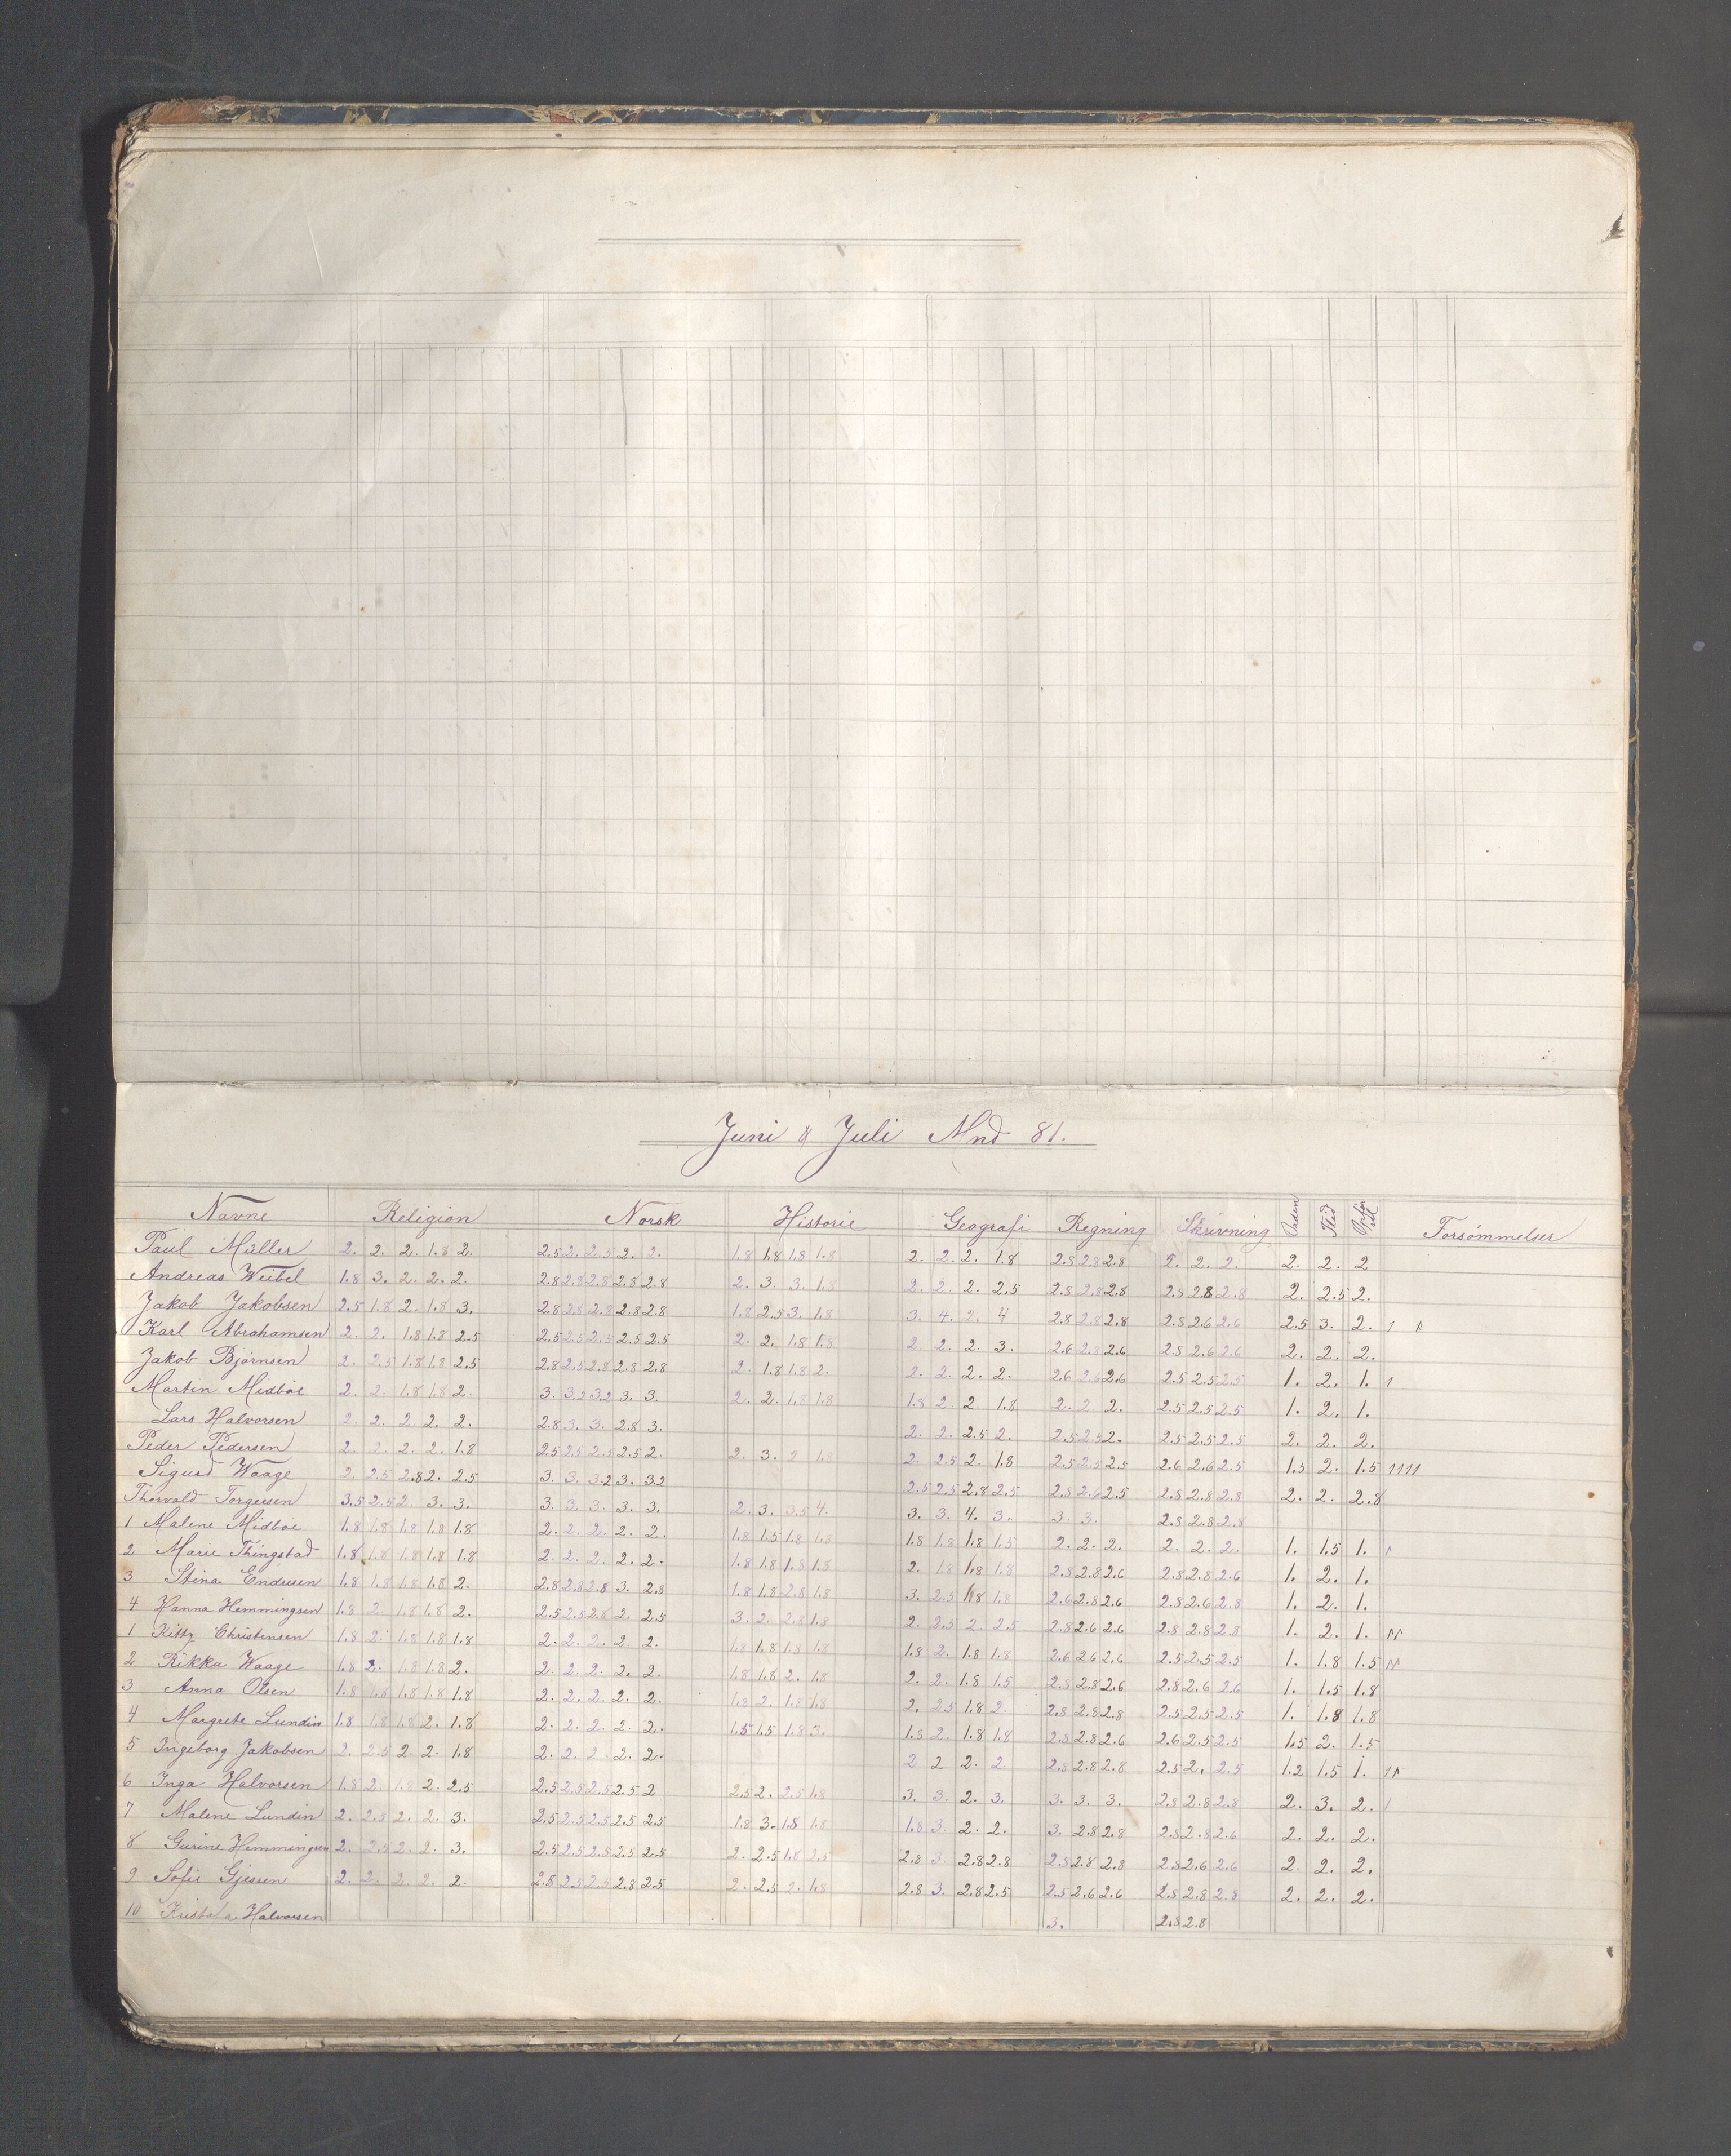 Juni & Juli Mnd 81.
Navne Religion Norsk Historie Geografi Regning Skrivning Orden Flid Forsømmelser
Paul Müller 2. 2. 2. 1.8 2. 2.5 2. 2.5 2. 2. 1.8 1.8 1.8 1.8 2. 2. 2. 1.8 2.8 2.8 2.8 2. 2. 2. 2. 2. 2
Andreas Weibel 1.8 3. 2. 2. 2. 2.8 2.8 2.8 2.8 2.8 2. 3 3. 1.8 2. 2. 2. 2.5 2.8 2.8 2.8 2.8 2.8 2.8 2. 2.5 2.
Jakob Jakobsen 2.5 1.8 2. 1.8 3. 2.8 2.8 2.8 2.8 2.8 1.8 2.5 3. 1.8 3. 4. 2. 4 2.8 2.8 2.8 2.8 2.6 2.6 2.5 3. 2. 1 1
Karl Abrahamsen 2. 2. 1.8 1.8 2.5 2.5 2.5 2.5 2.5 2.5 2. 2. 1.8 1.8 2. 2. 2. 3. 2.6 2.8 2.6 2.8 2.6 2.6 2. 2. 2.
Jakob Bjørnsen 2. 2.5 1.8 1.8 2.5 2.8 2.5 2.8 2.8 2.8 2. 1.8 1.8 2. 2. 2. 2. 2. 2.6 2.6 2.6 2.5 2.5 2.5 1. 2. 1. 1
Martin Midbøe 2. 2. 1.8 1.8 2. 3. 3.2 3.2 3. 3. 2. 2. 1.8 1.8 1.8 2. 2. 1.8 2. 2. 2. 2.5 2.5 2.5 1. 2. 1.
Lars Halvorsen 2. 2. 2. 2. 2. 2.8 3. 3. 2.8 3. 2. 2. 2.5 2. 2.5 2.5 2. 2.5 2.5 2.5 2. 2. 2.
Peder Pedersen 2. 2. 2. 2. 1.8 2.5 2.5 2.5 2.5 2. 2. 3. 2 1.8 2. 2.5 2. 1.8 2.5 2.5 2.5 2.6 2.6 2.5 1.5 2. 1.5 1111
Sigurd Waage 2. 2.5 2.8 2. 2.5 3. 3. 3.2 3. 3.2 2.5 2.5 2.8 2.5 2.8 2.6 2.5 2.8 2.8 2.8 2. 2. 2.8
Thorvald Torgersen 3.5 2.5 2. 3. 3. 3. 3. 3. 3. 3. 2. 3. 3.5 4. 3. 3. 4. 3. 3. 3. 2.8 2.8 2.8
1 Malene Midbøe 1.8 1.8 1.8 1.8 1.8 2. 2. 2. 2. 2. 1.8 1.5 1.8 1.8 1.8 1.8 1.8 1.5 2. 2. 2. 2. 2. 2. 1. 1.5 1. 1
2 Marie Thingstad 1.8 1.8 1.8 1.8 1.8 2. 2. 2. 2. 2. 1.8 1.8 1.8 1.8 2. 1.8 1.8 1.8 2.8 2.8 2.6 2.8 2.8 2.6 1. 2. 1.
3 Stina Endresen 1.8 1.8 1.8 1.8 2. 2.8 2.8 2.8 3. 2.8 1.8 1.8 2.8 1.8 3. 2.5 1.8 1.8 2.6 2.8 2.6 2.8 2.6 2.8 1. 2. 1.
4 Hanna Hemmingsen 1.8 2. 1.8 1.8 2. 2.5 2.5 2.8 2. 2.5 3. 2. 2.8 1.8 2. 2.5 2. 2.5 2.8 2.6 2.6 2.8 2.8 2.8 1. 2. 1. 11
1 Kitty Christensen 1.8 2. 1.8 1.8 1.8 2. 2. 2. 2. 2. 1.8 1.8 1.8 1.8 1.8 2. 1.8 1.8 2.6 2.6 2.6 2.5 2.5 2.5 1. 1.8 1.5 11
2 Rikka Waage 1.8 2. 1.8 1.8 2. 2. 2. 2. 2. 2. 1.8 1.8 2. 1.8 2. 2. 1.8 1.5 2.8 2.8 2.6 2.8 2.6 2.6 1. 1.5 1.8
3 Anna Olsen 1.8 1.8 1.8 1.8 1.8 2. 2. 2. 2. 2. 1.8 2. 1.8 1.8 2. 2.5 1.8 2. 2.8 2.8 2.8 2.5 2.5 2.5 1. 1.8 1.8
4 Margrete Lundin 1.8 1.8 1.8 2. 1.8 2. 2. 2. 2. 2. 1.5 1.5 1.8 3. 1.8 2. 1.8 1.8 2.8 2.8 2.6 2.6 2.5 2.5 1.5 2. 1.5
5 Ingeborg Jakobsen 2. 2.5 2. 2. 1.8 2. 2. 2. 2. 2. 2 2 2. 2. 2.8 2.8 2.8 2.5 2. 2.5 1.2 1.5 1. 11
6 Inga Halvorsen 1.8 2. 1.8 2. 2.5 2.5 2.5 2.5 2.5 2 2.5 2. 2.5 1.8 3. 3. 2. 3. 3. 3. 3. 2.8 2.8 2.8 2. 3. 2. 1
7 Malene Lundin 2. 2.5 2. 2. 3. 2.5 2.5 2.5 2.5 2.5 1.8 3. 1.8 1.8 1.8 3. 2. 2. 3. 2.8 2.8 2.8 2.8 2.6 2. 2. 2.
8 Gurine Hemmingsen 2. 2.5 2. 2. 3. 2.5 2.5 2.5 2.5 2.5 2. 2.5 1.8 2.5 2.8 3. 2.8 2.8 2.8 2.8 2.8 2.8 2.6 2.6 2. 2. 2.
9 Sofie Gjessen 2. 2. 2. 2. 2. 2.8 2.5 2.5 2.8 2.5 2. 2.5 2. 1.8 2.8 3. 2.8 2.5 2.5 2.6 2.6 2.8 2.8 2.8 2. 2. 2.
10 Halvorsen 3. 2.8 2.8